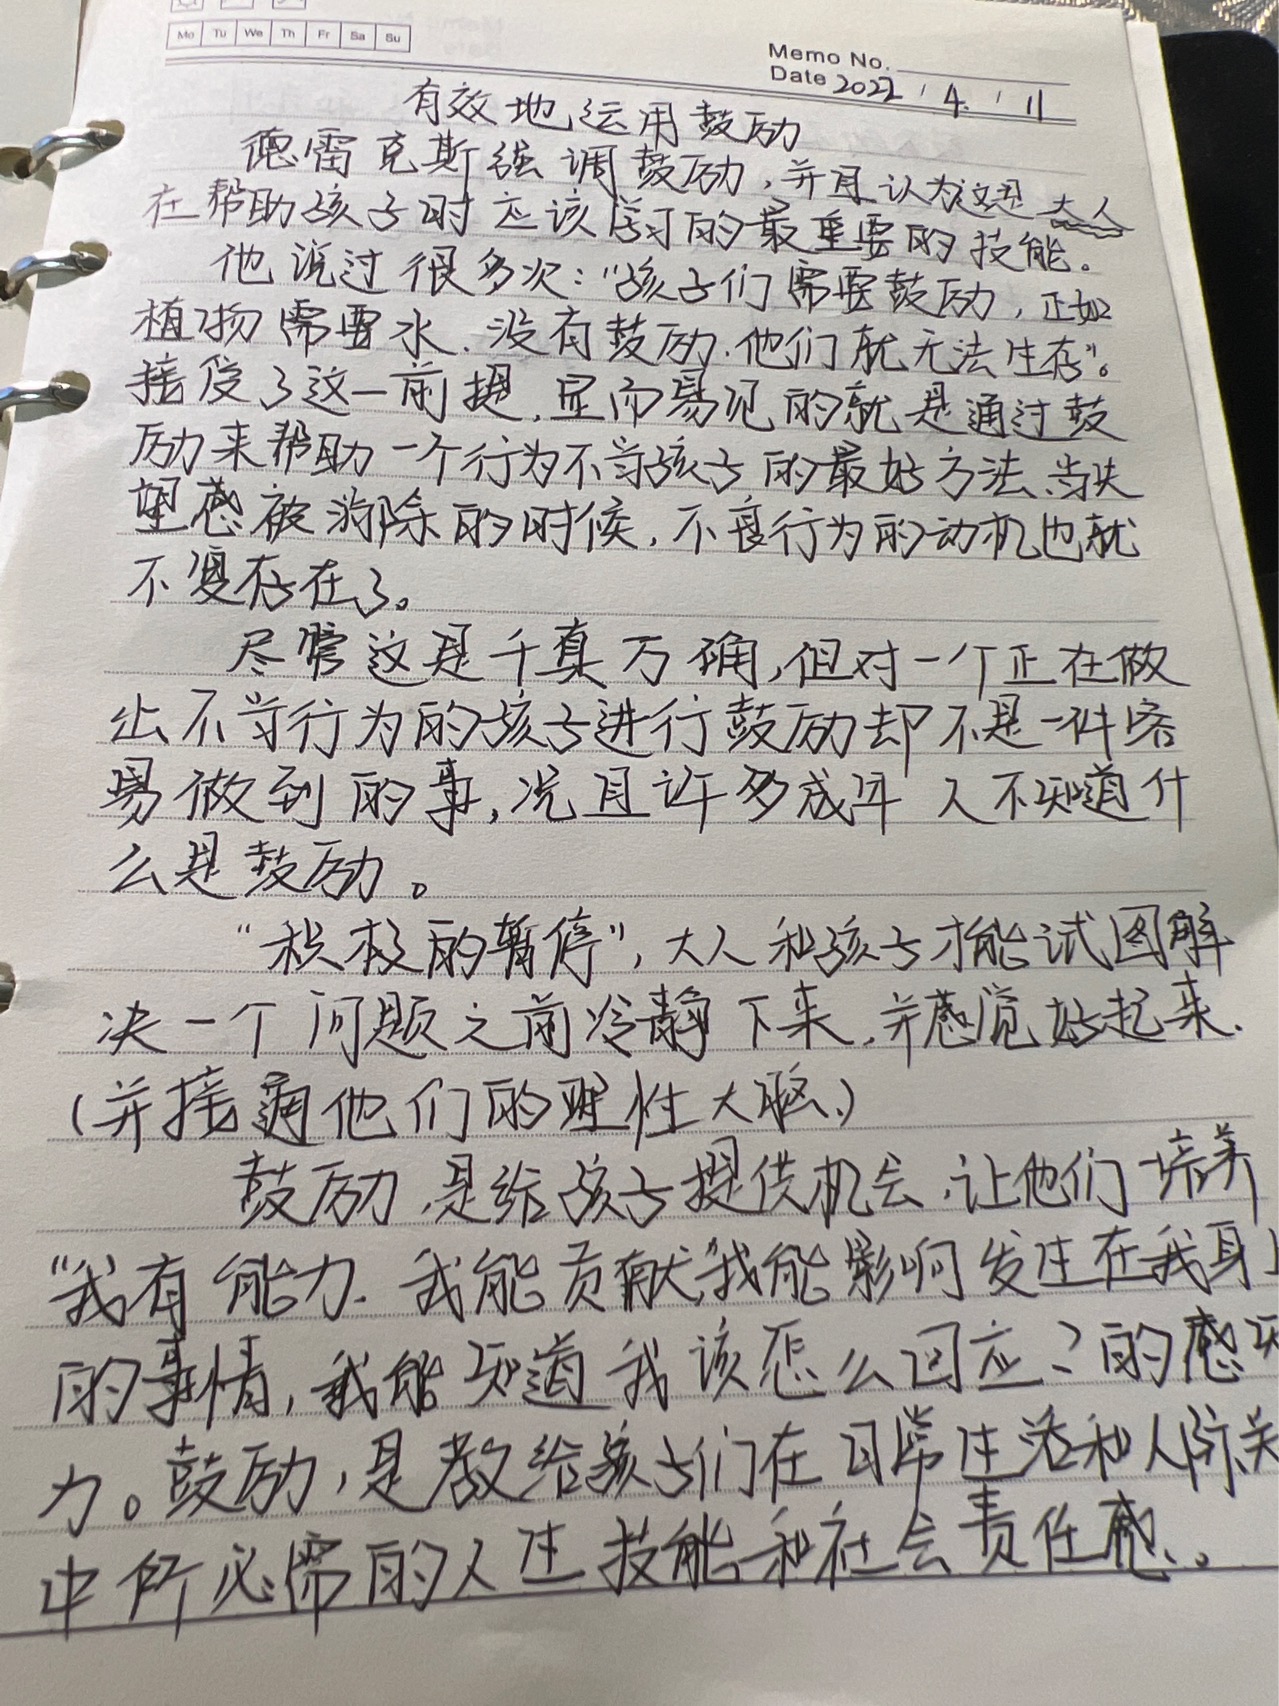 Mo Tu We Th Fr Sa Su
Memo No.
Date 2022 / 4. / 11
有效地运用鼓励
德雷克斯强调鼓励,并且认为这是大人
在帮助孩子时应该学习的最重要的技能。
他说过很多次:“孩子们需要鼓励,正如
植物需要水.没有鼓励.他们就无法生存”。
接受了这一前提,显而易见的就是通过鼓
励来帮助一个行为不当孩子的最好方法.当失
望感被消除的时候,不良行为的动机也就
不复存在了。
尽管这是千真万确,但对一个正在做
出不当行为的孩子进行鼓励却不是一件容
易做到的事,况且许多成年人不知道什
么是鼓励。
“积极的暂停”,大人和孩子才能试图解
决一个问题之前冷静下来,并感觉好起来.
(并接通他们的理性大脑.)
鼓励,是给孩子提供机会,让他们培养
“我有能力.我能贡献,我能影响发生在我身上
的事情,我能知道我该怎么回应?的感知
力。鼓励,是教给孩子们在日常生活和人际关
中所必需的人生技能和社会责任感.。